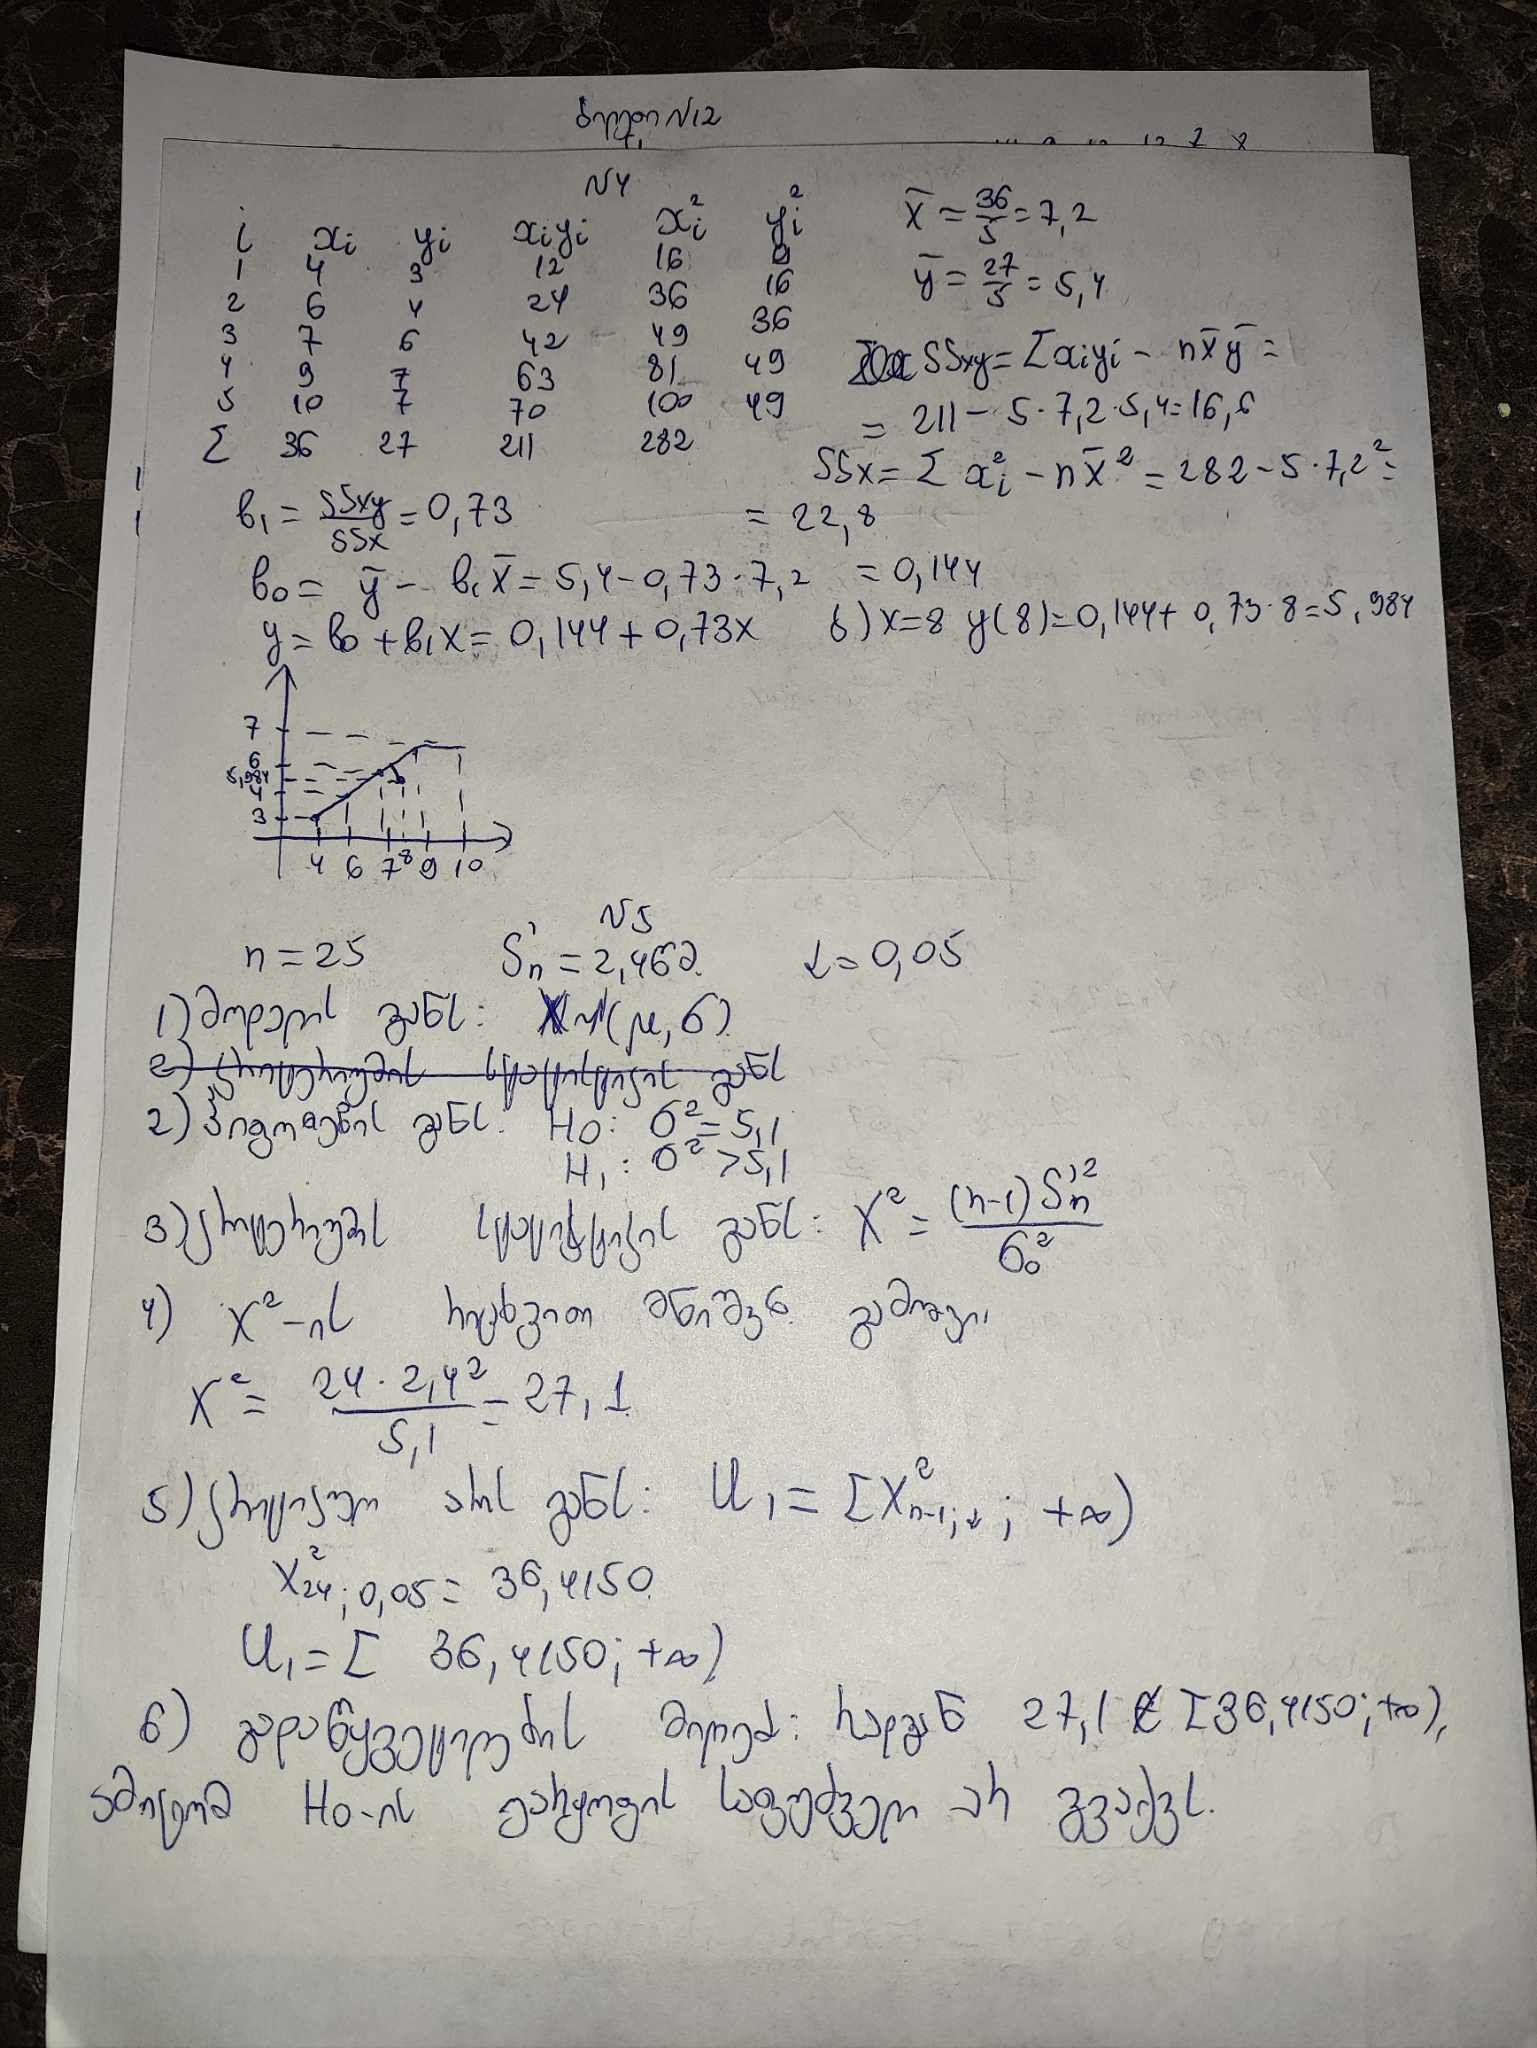 ბილეთი N12
N4
i xi yi xiyi xi² yi²
1 4 3 12 16 9
2 6 4 24 36 16
3 7 6 42 49 36
4 9 7 63 81 49
5 10 7 70 100 49
Σ 36 27 211 282
x̄ = 36/5 = 7,2
ȳ = 27/5 = 5,4
SSxy = Σxiyi - nx̄ȳ =
= 211 - 5·7,2·5,4 = 16,6
SSx = Σxi² - nx̄² = 282 - 5·7,2² =
= 22,8
b₁ = SSxy/SSx = 0,73
b₀ = ȳ - b₁x̄ = 5,4 - 0,73·7,2 = 0,144
y = b₀ + b₁x = 0,144 + 0,73x
ბ) x=8 y(8) = 0,144 + 0,73·8 = 5,984
7
6
5,984
4
3
4 6 7 8 9 10
N5
n = 25 S'n = 2,4 α = 0,05
1) მოდელის განს: X~N(μ,σ)
2) კრიტერიუმის სტატისტიკის განს
2) ჰიპოთეზის განს: H0: σ² = 5,1
H₁: σ² > 5,1
3) კრიტერიუმის სტატისტიკის განს: χ² = (n-1)S'n²/σ₀²
4) χ²-ის რიცხვითი მნიშვნ. გამოთვ.
χ² = 24·2,4²/5,1 = 27,1
5) კრიტიკული არის განს: U₁ = [χ²n-1;α; +∞)
χ²24;0,05 = 36,4150
U₁ = [36,4150; +∞)
6) გადაწყვეტილების მიღება: რადგან 27,1 ∉ [36,4150; +∞),
ამიტომ H0-ის უარყოფის საფუძველი არ გვაქვს.